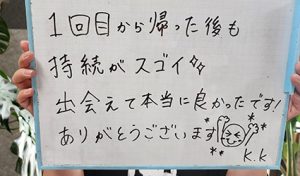 1回目から帰った後も
持続がスゴイ✨
出会えて本当に良かったです!
ありがとうございます
K.K